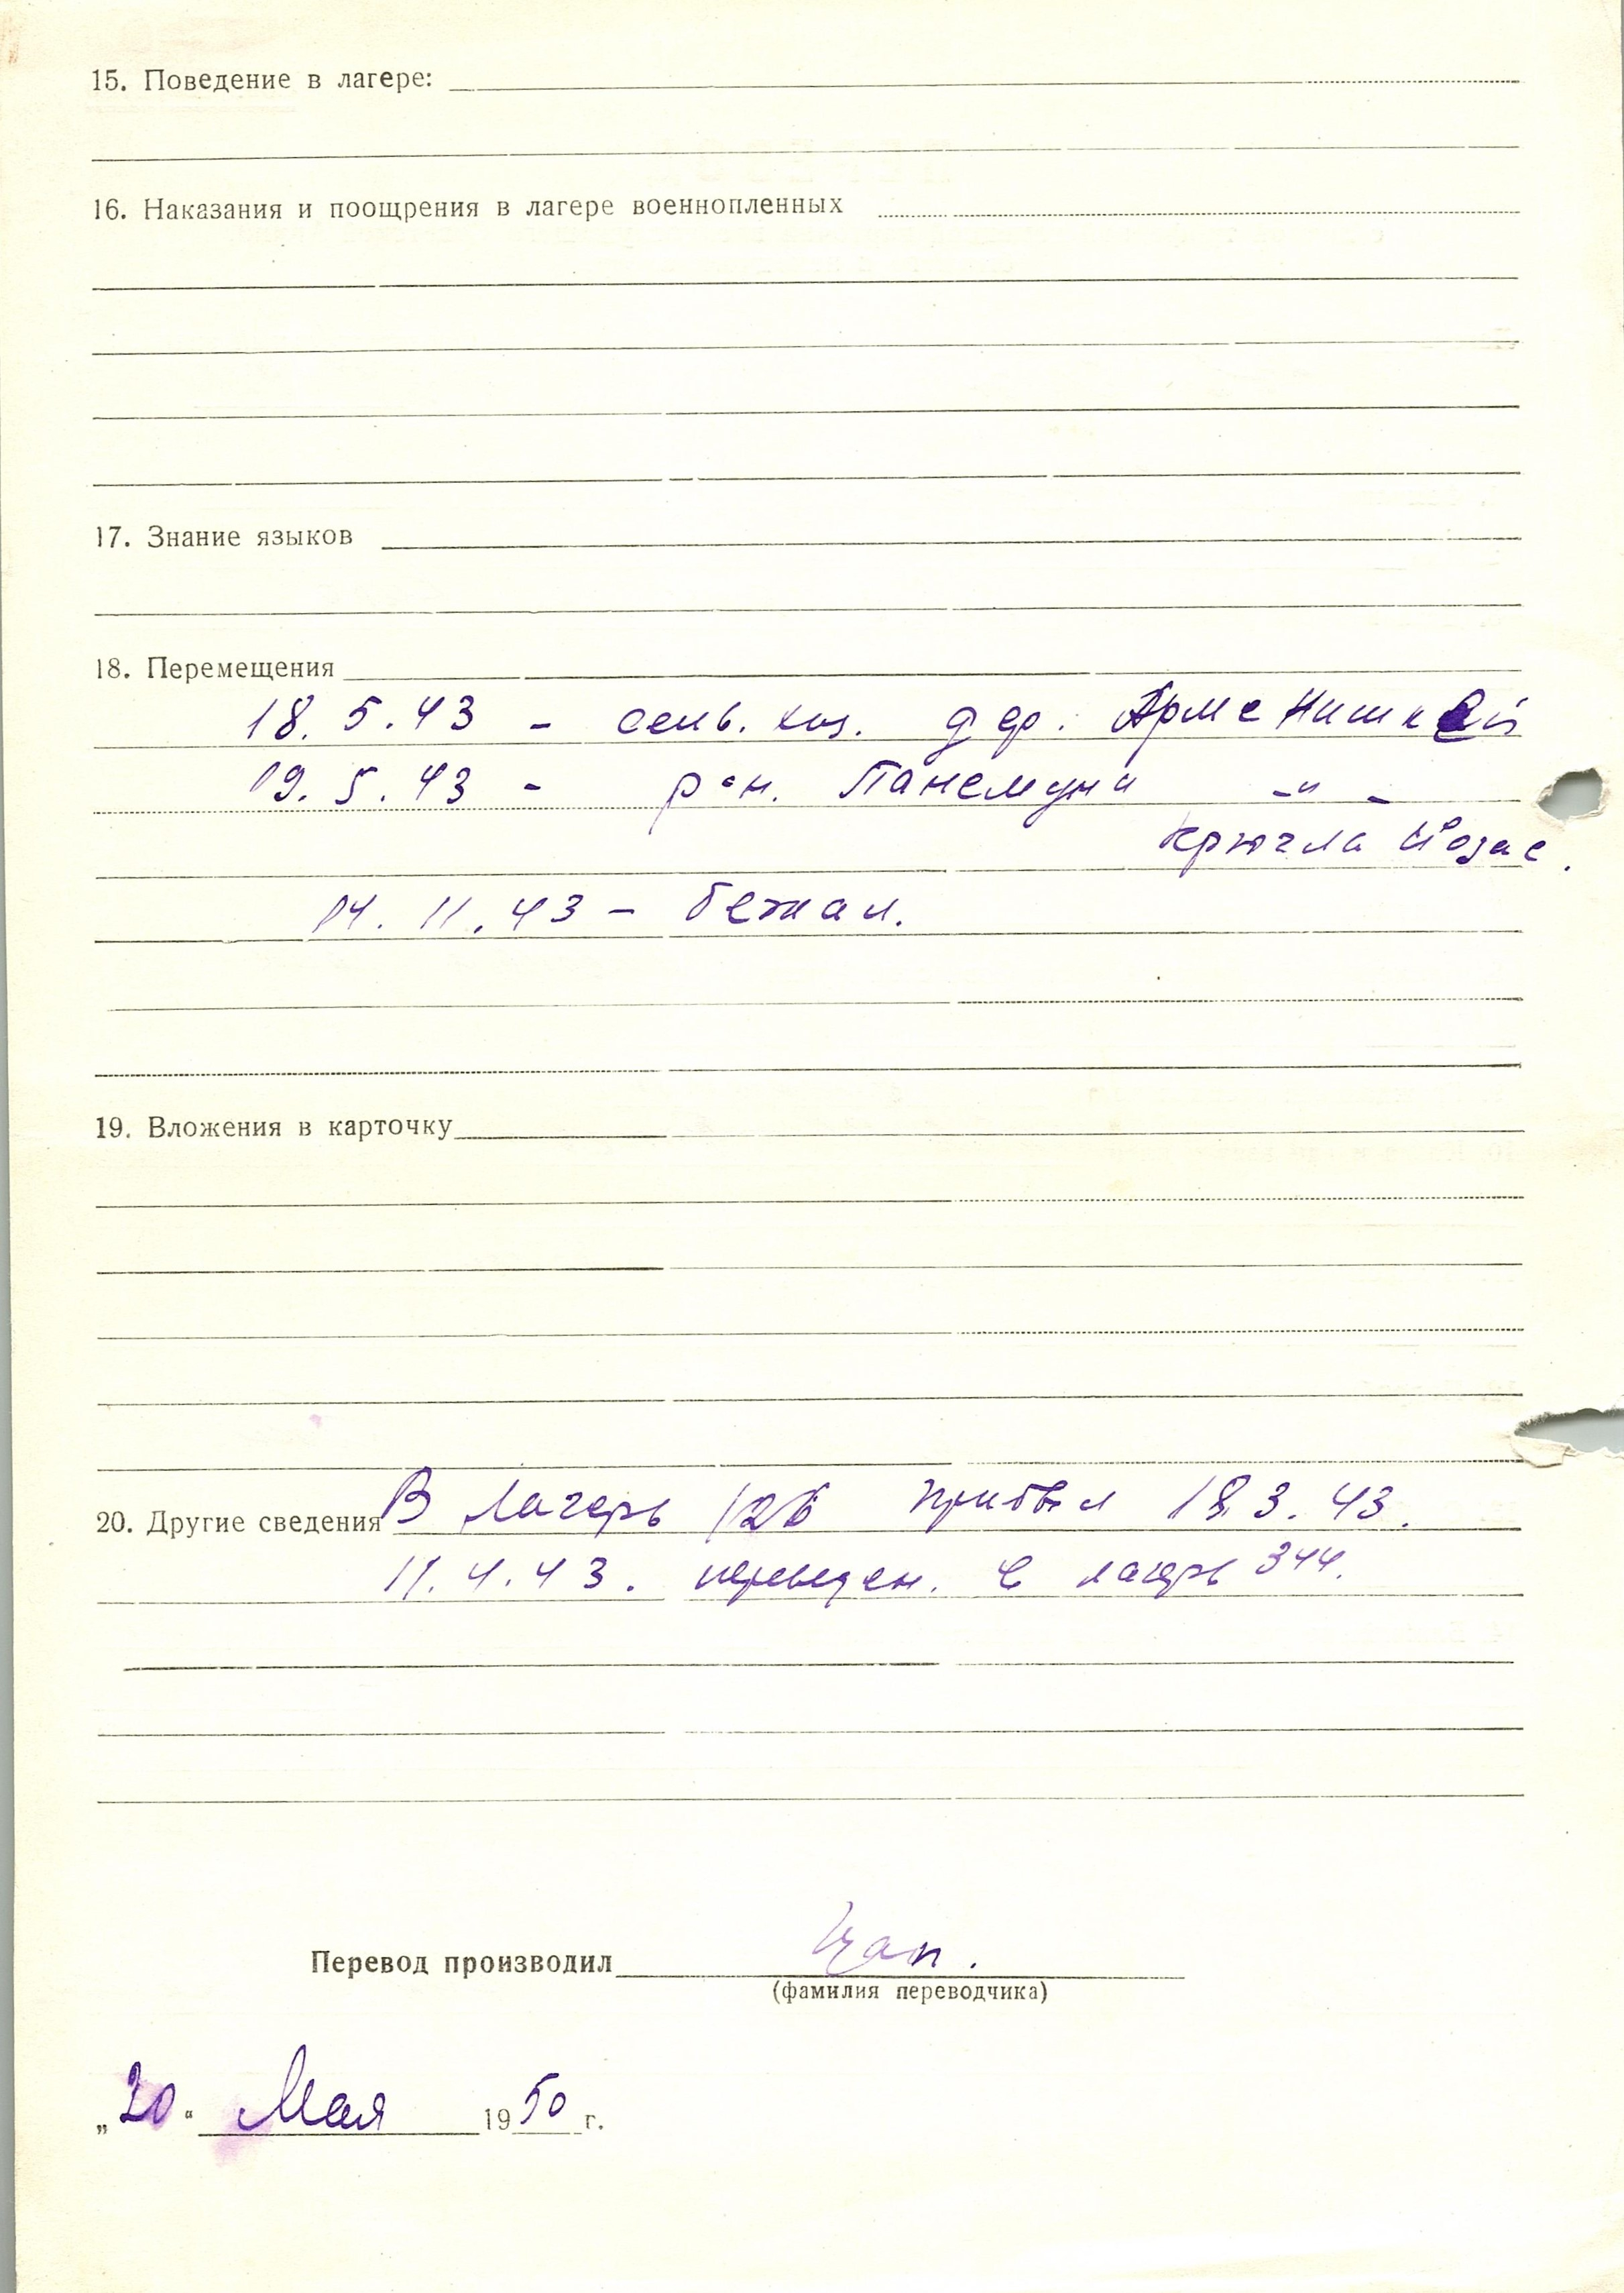 15. Поведение в лагере:
16. Наказания и поощрения в лагере военнопленных
17. Знание языков
18. Перемещения
18. 5. 43 – сель. хоз. дер. Арменишкей
19. 5. 43 – р-н. Панемуни –"–
Крючла Йозас.
14. 11. 43 – бежал.
19. Вложения в карточку
20. Другие сведения В лагерь 126 прибыл 18.3. 43.
11. 4. 43. переведен. в лагерь 344.
Перевод производил Цап.
(фамилия переводчика)
„20" Мая 1950 г.